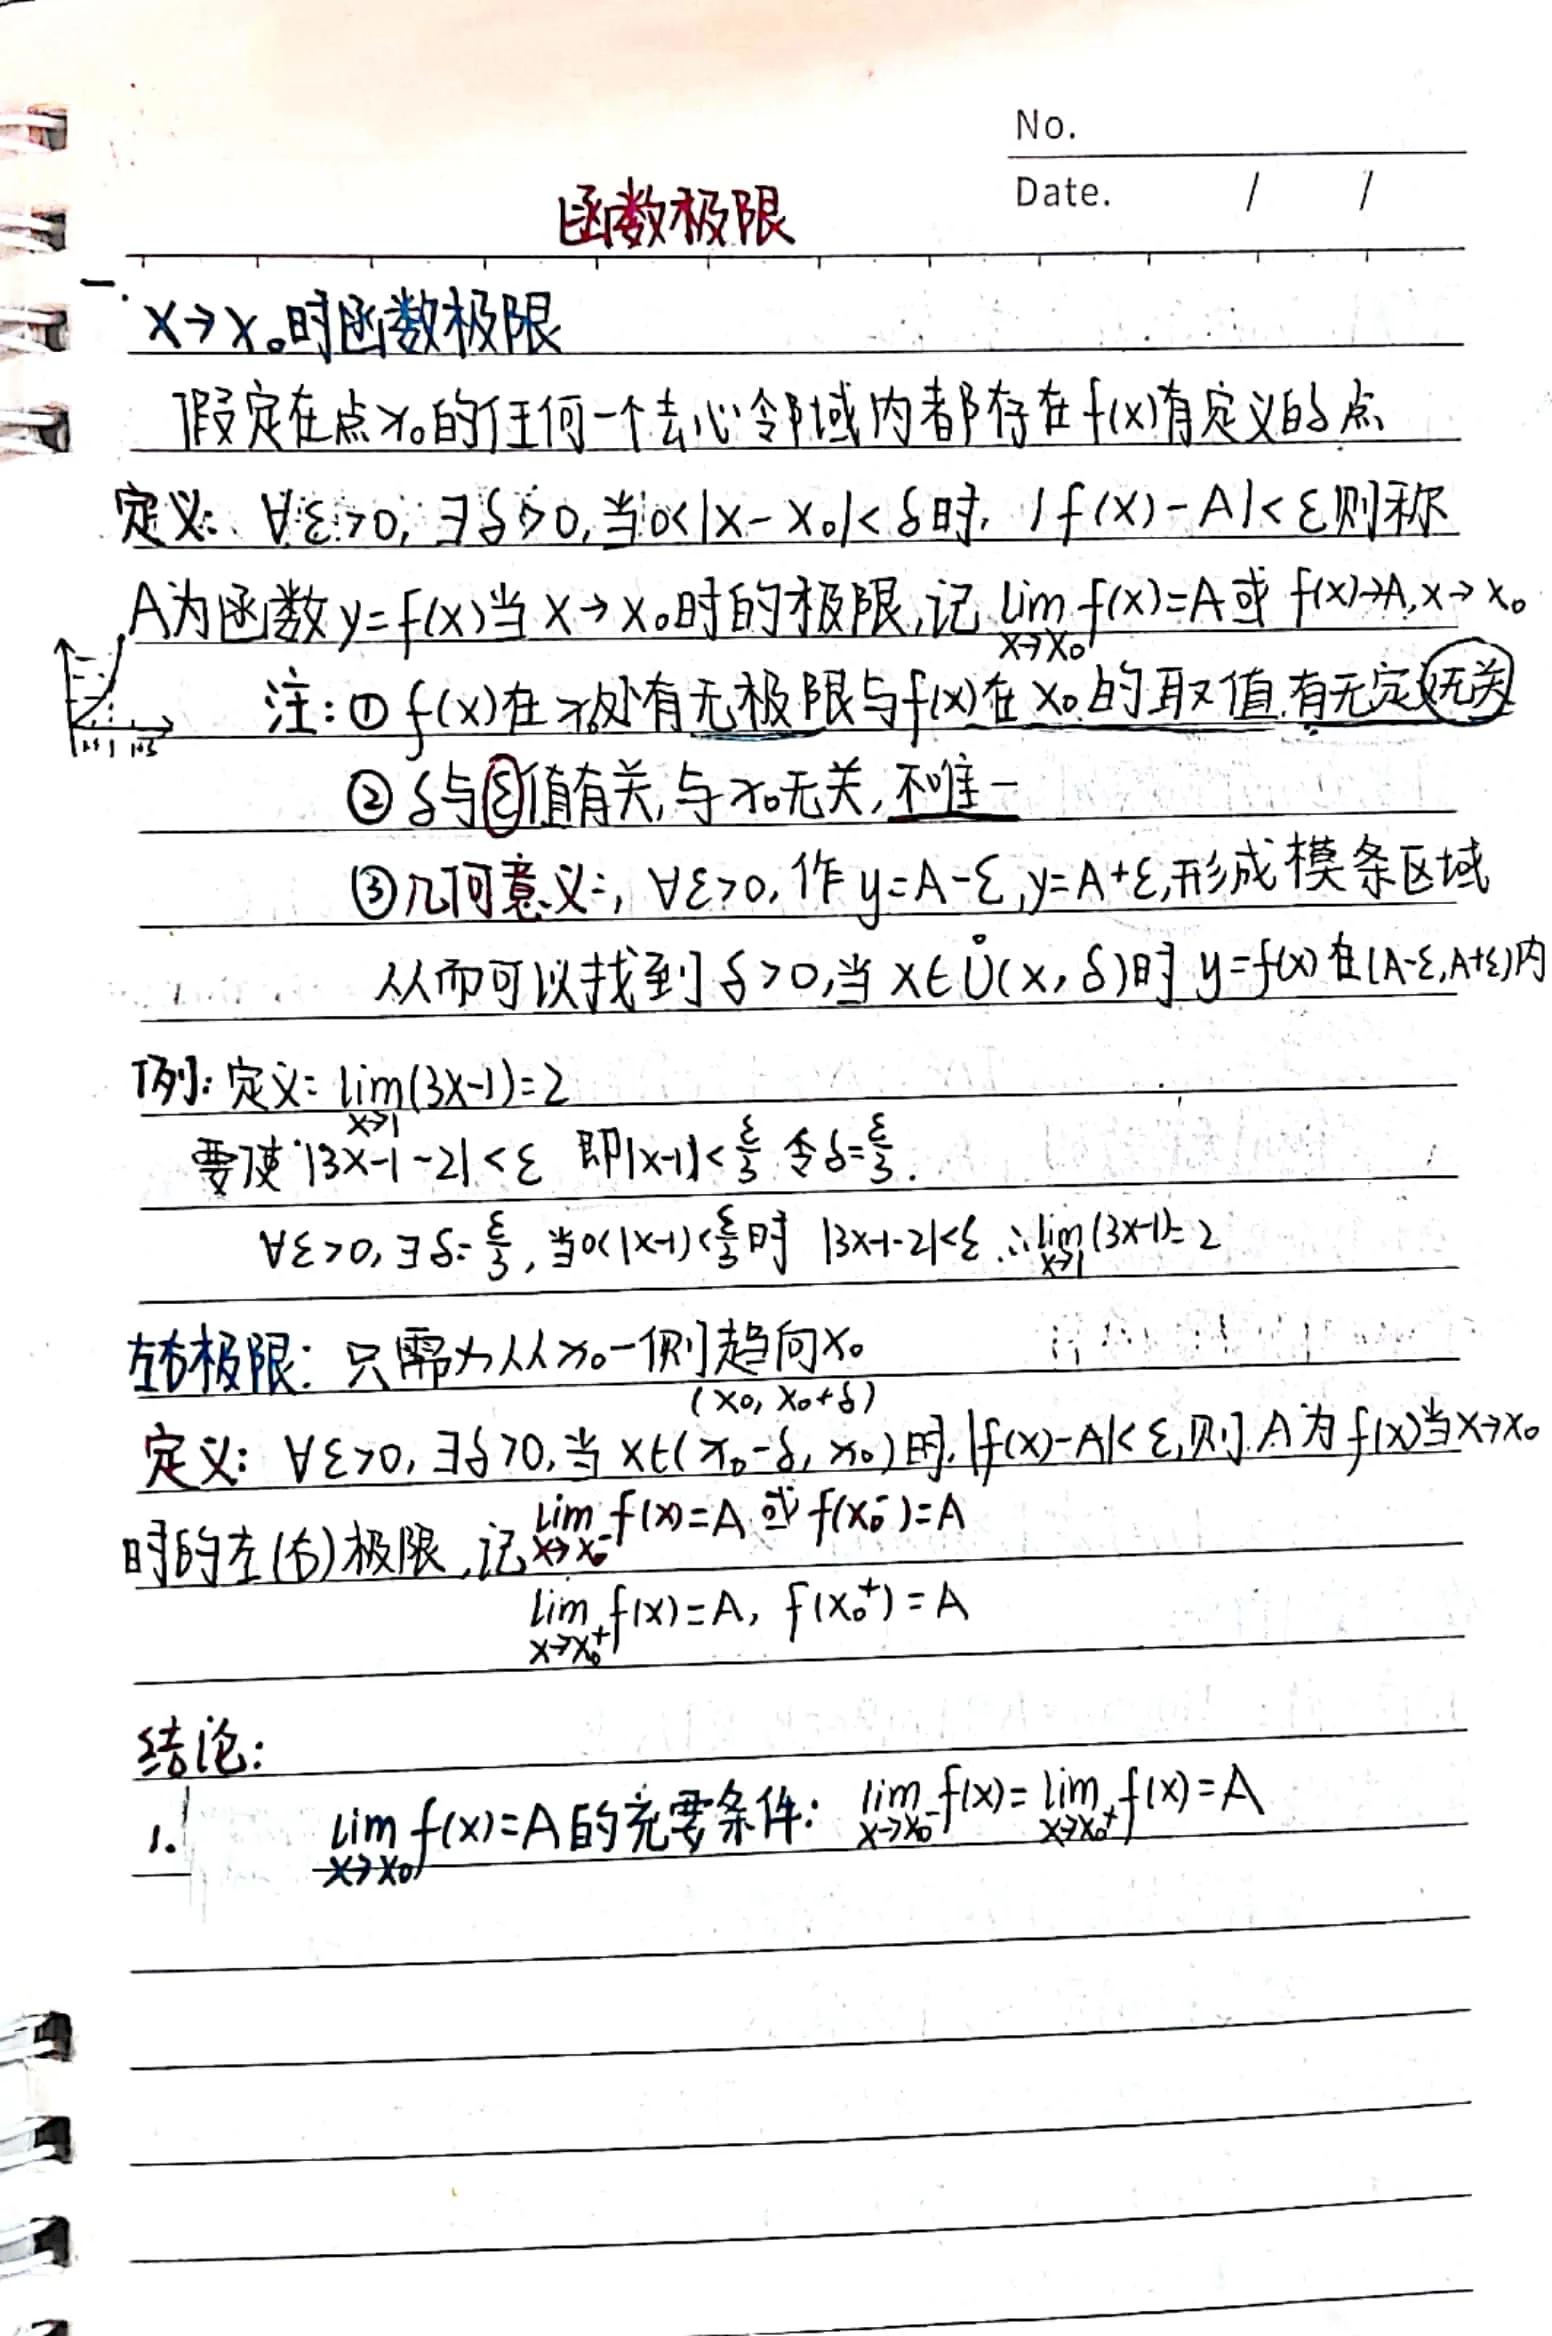 No.
Date. / /
函数极限
一.
x→x₀时函数极限
假定在点x₀的任何一个去心邻域内都存在f(x)有定义的点
定义: ∀ε>0, ∃δ>0, 当0<|x-x₀|<δ时, |f(x)-A|<ε则称
A为函数y=f(x)当x→x₀时的极限,记 lim_{x→x₀} f(x)=A或 f(x)→A, x→x₀
注:① f(x)在x₀处有无极限与f(x)在x₀的取值,有无定义无关
② δ与ε值有关,与x₀无关,不唯一
③几何意义:, ∀ε>0, 作y=A-ε,y=A+ε,形成模条区域
从而可以找到δ>0,当x∈Ů(x, δ)时 y=f(x)在(A-ε,A+ε)内
例: 定义: lim_{x→1}(3x-1)=2
要使|3x-1-2|<ε 即|x-1|<ε/3 令δ=ε/3.
∀ε>0, ∃δ=ε/3, 当0<|x-1|<ε/3时 |3x-1-2|<ε ∴lim_{x→1}(3x-1)=2
左右极限: 只需为从x₀一侧趋向x₀
(x₀, x₀+δ)
定义: ∀ε>0, ∃δ>0, 当x∈(x₀-δ, x₀)时, |f(x)-A|<ε,则A为f(x)当x→x₀
时的左(右)极限,记 lim_{x→x₀⁻} f(x)=A 或 f(x₀⁻)=A
lim_{x→x₀⁺} f(x)=A, f(x₀⁺)=A
结论:
1. lim_{x→x₀} f(x)=A的充要条件: lim_{x→x₀⁻} f(x)=lim_{x→x₀⁺} f(x)=A